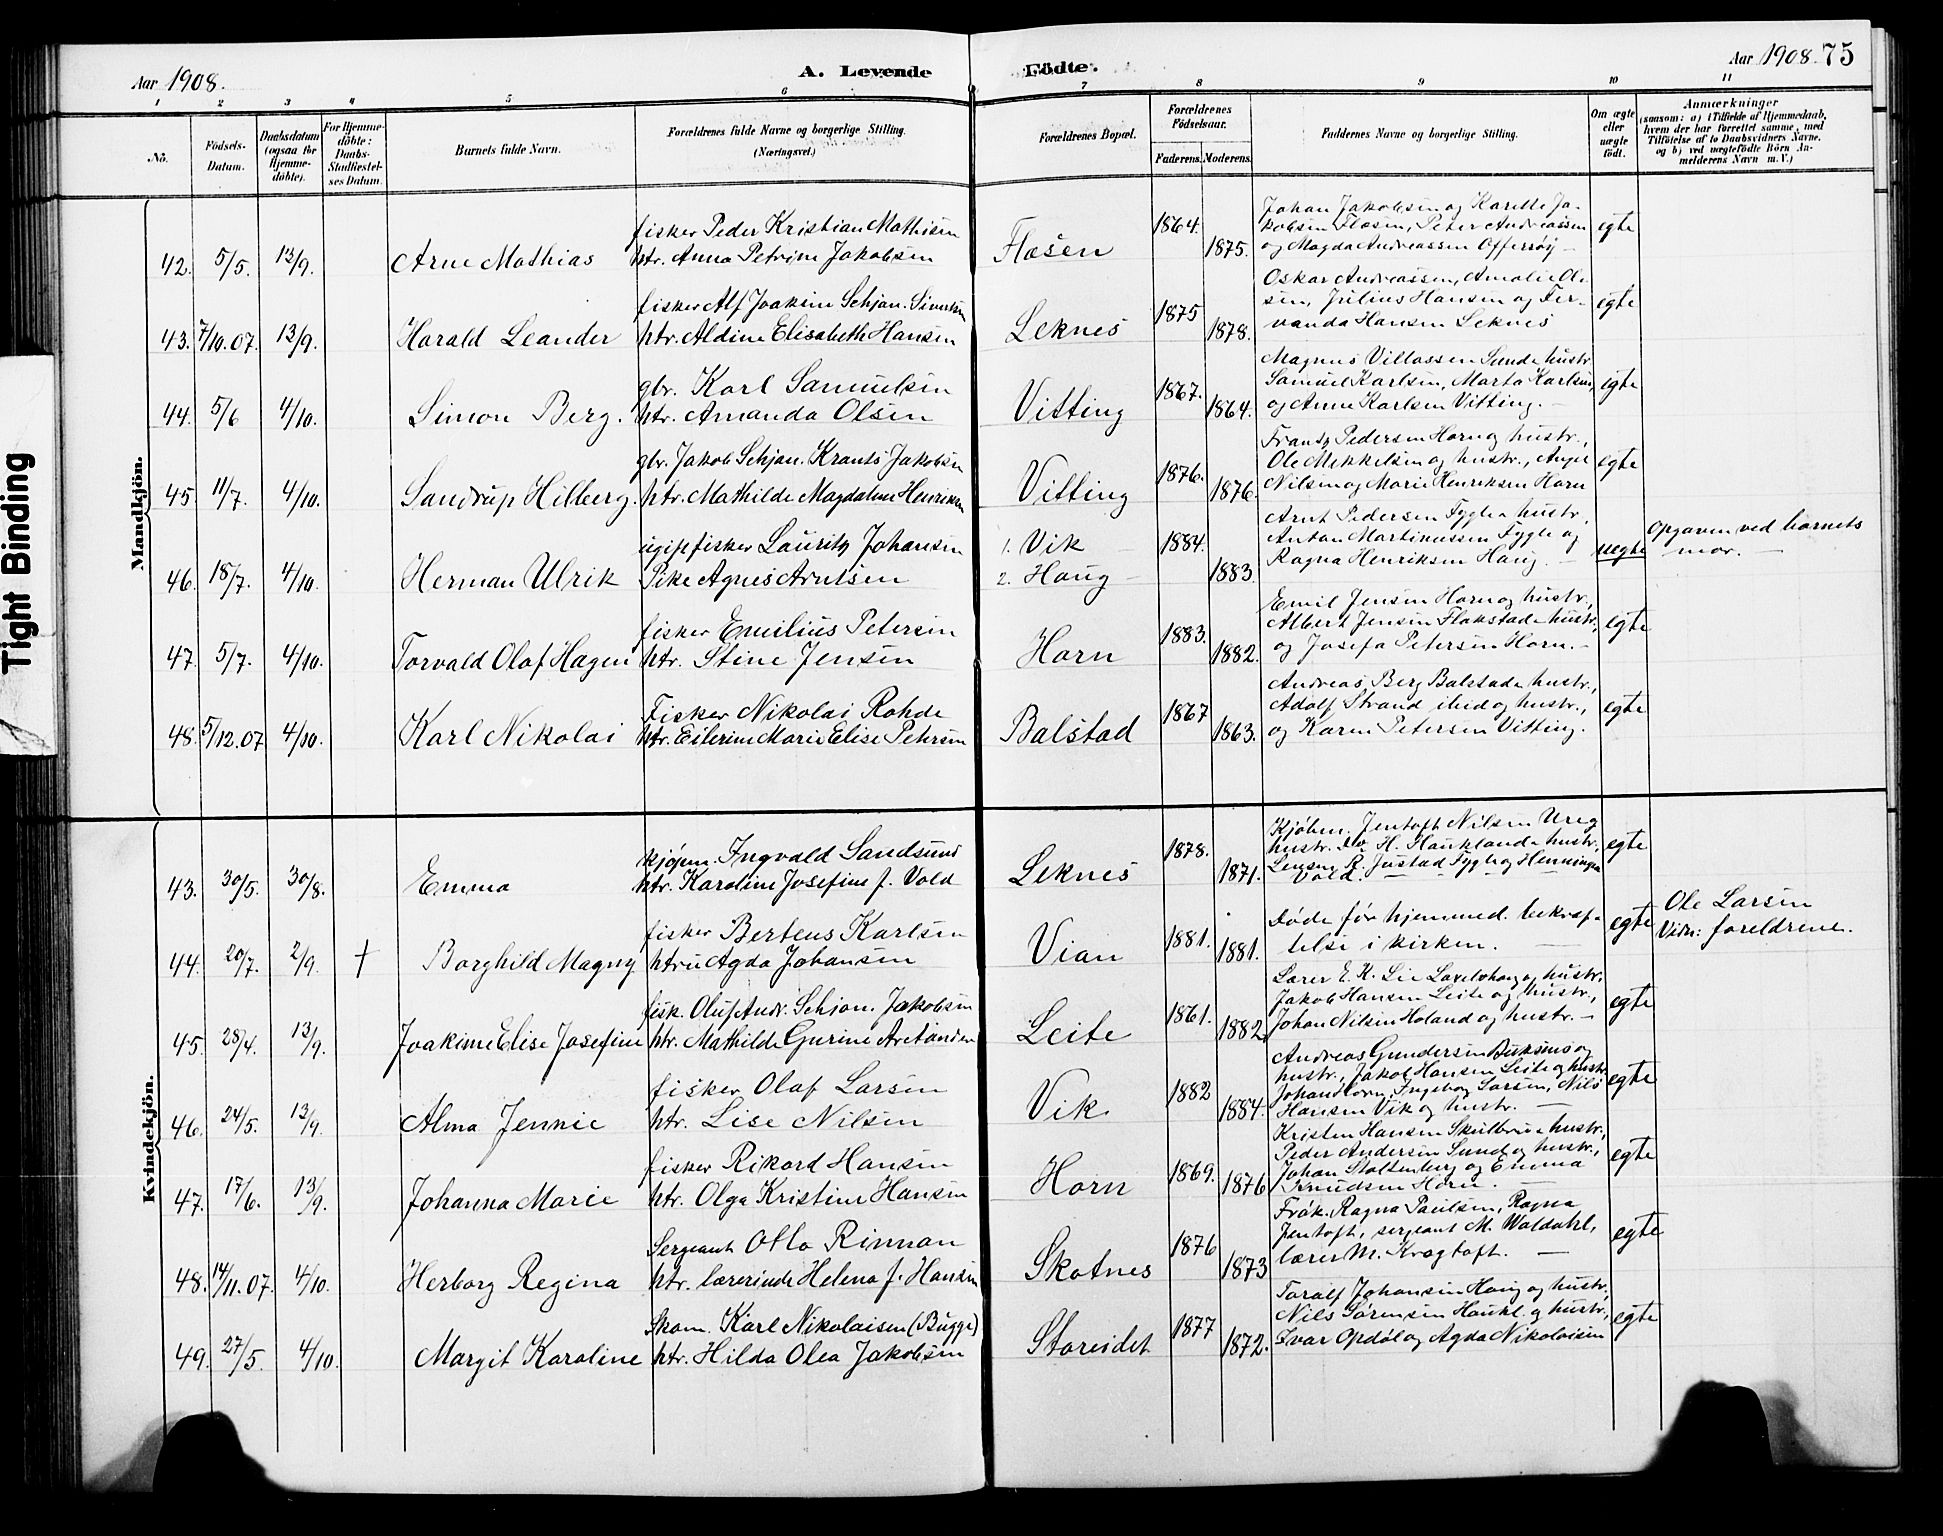 Tight Binding
Aar 1908.
A. Levende Födte.
Aar 1908 75
1 2 3 4 5 6 7 8 9 10 11
No.
Födsels-Datum.
Daabsdatum (ogsaa för Hjemme-döbte).
For Hjemme-döbte: Daabs-Stadfæstel-ses Datum.
Barnets fulde Navn.
Forældrenes fulde Navne og borgerlige Stilling.
(Næringsvei.)
Forældrenes Bopæl.
Forældrenes Födselsaar.
Faderens. Moderens.
Faddernes Navne og borgerlige Stilling.
Om ægte eller uægte födt.
Anmærkninger
(saasom: a) i Tilfælde af Hjemmedaab,
hvem der har forrettet samme, med
Tilföielse af to Daabsvidners Navne.
og b) ved uægtefödte Börn An-
melderens Navn m. V.)
Mandkjön.
fisker Peder Kristian Mathisen
42. 5/5. 13/9. Arne Mathias htr. Anna Petrine Jakobsen Flæsen 1864. 1875.
Johan Jakobsen og Karelle Ja-
kobsen Flæsen, Peter Andreassen
og Magda Andreassen Offersöy — egte
fisker Alf Joakim Schjan. Sivertsen
43. 7/10.07. 13/9. Harald Leander htr. Aldine Elisabeth Hansen Leknes 1875 1878.
Oskar Andreassen, Amalie Ol-
sen, Julius Hansen og Fer-
nanda Hansen Leknes egte
gbr. Karl Samuelsen
44. 5/6 4/10. Simon Berg. htr. Amanda Olsen Vitting 1867. 1864.
Magnus Villassen Sunde hustr.
Samuel Karlsen, Marta Karlsen,
og Anne Karlsen Vitting. — egte
gbr. Jakob Schjan. Krants Jakobsen
45 11/7. 4/10. Sandrup Hilberg. htr. Mathilde Magdalene Henriksen Vitting 1876. 1876.
Frants Pedersen Horn og hustr.,
Ole Mikkelsen og hustr.,
Nilsen og Marie Henriksen Horn egte
ugift fisker Lauritz Johansen
46. 18/7. 4/10. Herman Ulrik Pike Agnes Arntsen 1. Vik 2. Haug — 1884. 1883.
Arnt Pedersen Fygle hustr,
Anton Martinussen Fygle og
Ragna Henriksen Haug. — uegte
Opgaven ved barnets
mor. —
fisker Emilius Petersen
47. 5/7. 4/10. Torvald Olaf Hagen htr. Stine Jensen Horn 1883. 1882.
Emil Jensen Horn og hustr,
Albert Jensen Flakstad hustr.,
og Josefa Petersen Horn. — egte
Fisker Nikolai Rohde
48. 5/12.07 4/10. Karl Nikolai htr. Eilerine Marie Elise Petersen Balstad 1867 1863.
Andreas Berg Balstad hustr.,
Adolf Strand ibid og hustr.,
og Karen Petersen Vitting. egte
Kvindekjön.
kjøpm. Ingvald Sandsund
43. 30/5. 30/8. Emma htr. Karoline Josefine f. Vold Leknes 1878. 1871.
Kjöbm. Jentoft Nilsen Ureg
hustr. H. Haukland hustr.,
Lensm. R. Justad Fygle og Henningsen
Vold. egte
fisker Berteus Karlsen
44. 20/7. 2/9. + Borghild Magny htru Agda Johansen Vian 1881. 1881.
Døde før hjemmed. bekræf-
telse i kirken. — egte
Ole Larsen
Vidn: foreldrene.
fisk. Oluf Andr. Schjan. Jakobsen
45. 28/4. 13/9. Joakime Elise Josefine htr. Mathilde Gurine Arctander Leite 1861. 1882.
Lærer E. K. Lie og hustr.,
Jakob Hansen Leite og hustr.,
Johan Nilsen Holand og hustr. — egte
fisker Olaf Larsen
46. 24/5. 13/9. Alma Jennie htr. Lise Nilsen Vik 1882 1884.
Andreas Gundersen Buksnes og
hustr., Jakob Hansen Leite og hustr
Johan Horn, Ingeborg Larsen, Nils
Hansen Vik og hustr. — egte
fisker Rikard Hansen
47. 17/6. 13/9. Johanna Marie htr. Olga Kristine Hansen Horn 1869. 1876
Kristen Hansen Skulbru hustr.,
Peder Andersen Sund og hustr.,
Johan Stoltenberg og Emma
Knudsen Horn. — egte
Sergeant Otto Rinnan
48. 14/11.07. 4/10. Herborg Regina htr. lærerinde Helena f. Hansen Skotnes 1876 1873
Frøk. Ragna Paulsen, Ragna
Jentoft, sergeant M. Waldahl,
lærer M. Kragtoft. — egte
Skom. Karl Nikolaisen (Bugge)
49. 27/5. 4/10. Margit Karoline htr. Hilda Olea Jakobsen Storeidet 1877 1872.
Toralf Johansen Haug og hustr,
Nils Sørensen Haukl. og hustr.,
Ivar Opdöl og Agda Nikolaisen egte